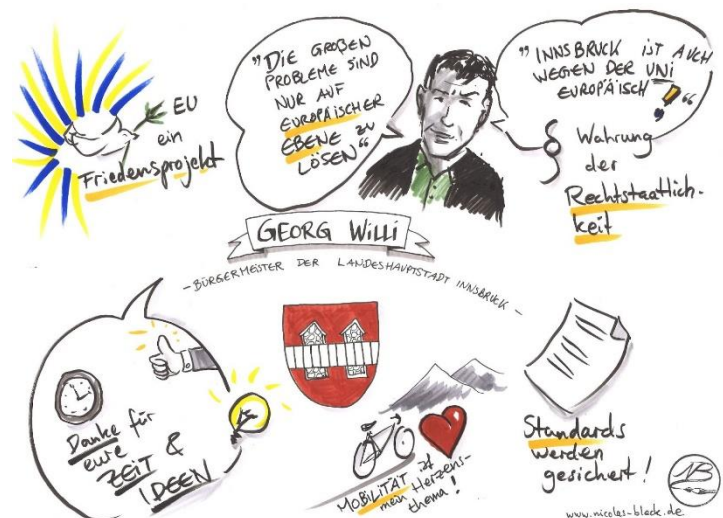 EU
ein
Friedensprojekt
"DIE GROßEN
PROBLEME SIND
NUR AUF
EUROPÄISCHER
EBENE ZU
LÖSEN"
"INNSBRUCK IST AUCH
WEGEN DER UNI
EUROPÄISCH!"
§ Wahrung
der
Rechtstaatlich-
keit
GEORG WILLI
- BÜRGERMEISTER DER LANDESHAUPTSTADT INNSBRUCK -
Danke für
eure
ZEIT &
IDEEN
MOBILITÄT ist
mein Herzens-
thema!
Standards
werden
gesichert!
NB
www.nicolas-bleck.de